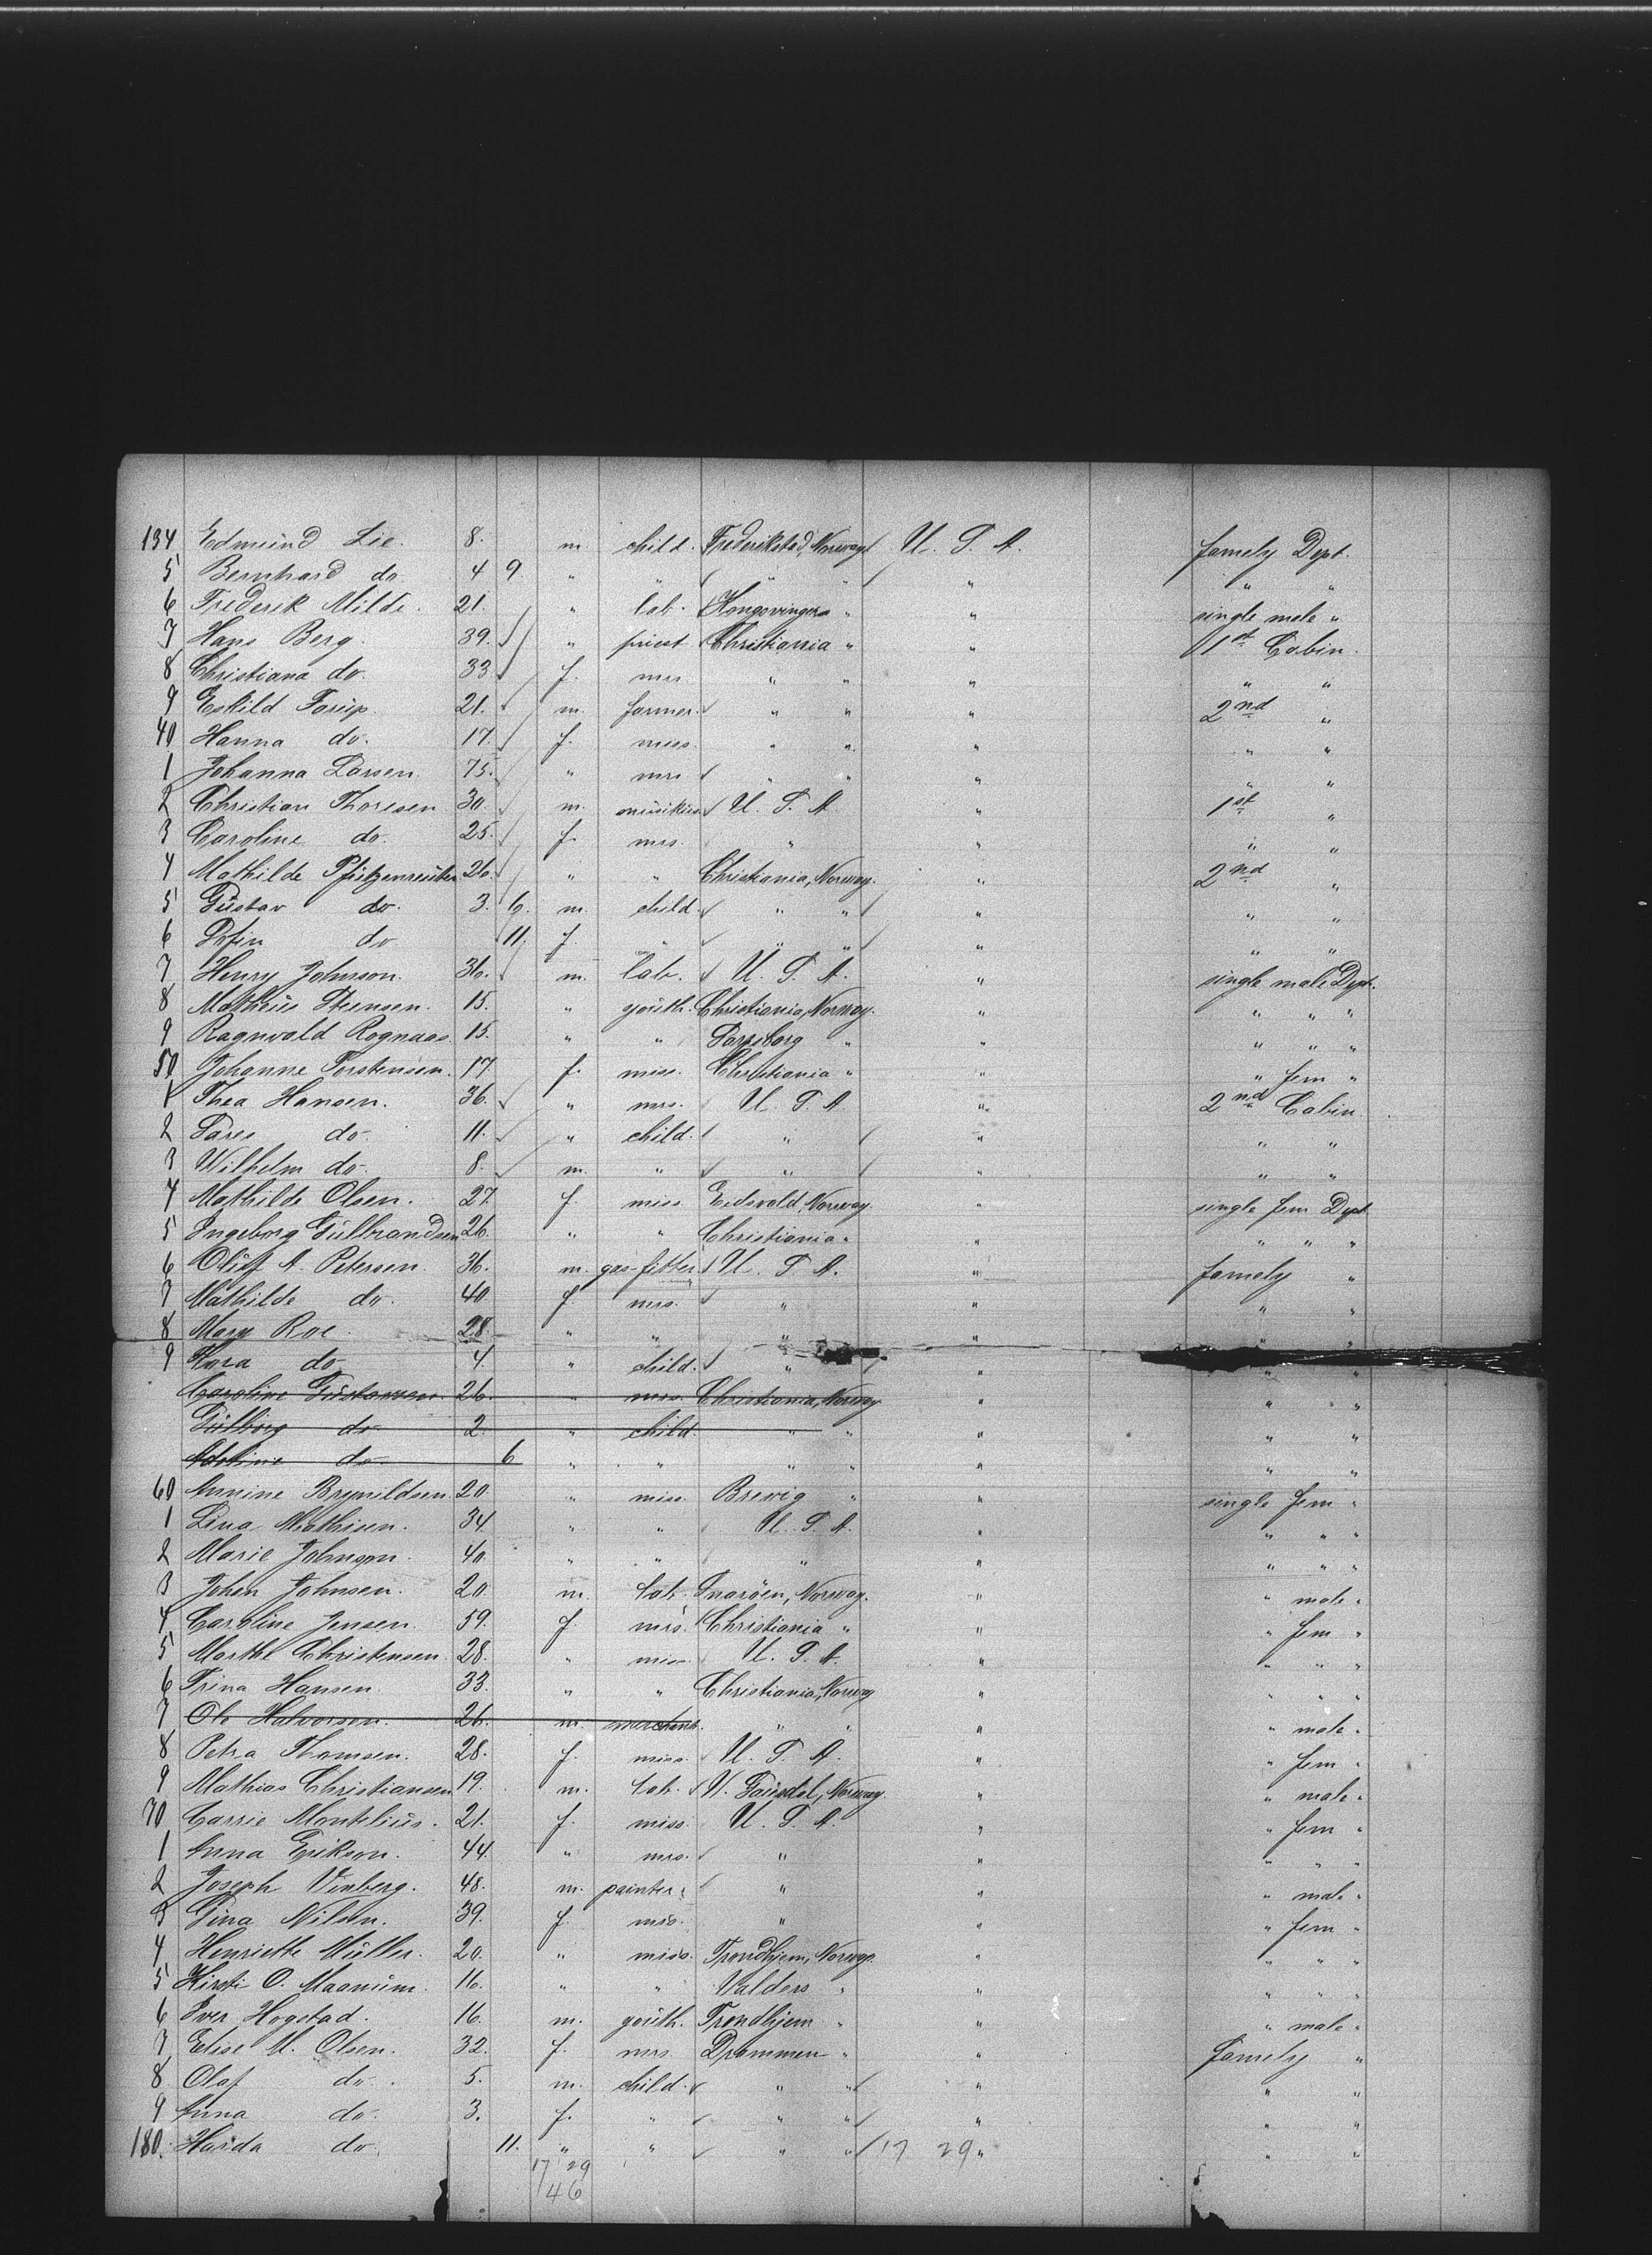 134 Edmund Lie. 8. m. child. Frederikstad, Norway U. S. A. famely Dept.
5 Bernhard do 4 9. " " " " " " "
6 Frederik Milde. 21. " lab. Kongsvinger " " single male "
7 Hans Berg. 39. " priest Christiania " " 1st Cabin.
8 Christiana do. 33 f. mrs. " " " " "
9 Eskild 21. m. farmer. " " " 2nd "
40 Hanna do. 17. f. miss. " " " " "
1 Johanna Larsen. 75. " mrs " " " " "
2 Christian Thoresen 30. m. U. S. A. " 1st "
3 Caroline do. 25. f. mrs. " " " "
4 Mathilde 26. " " Christiania, Norway. " 2nd "
5 Gustav do. 3. 6. m. child. " " " " "
6 do 11. f. " " " " " "
7 Henry Johnson. 36. m. lab. U. S. A. " single male Dept.
8 Mathius Steensen. 15. " youth. Christiania, Norway. " " " "
9 Ragnvald Rognaas 15. " " Sarpsborg " " " " "
50 Johanne Torstensen. 17. f. miss. Christiania " " " fem "
1 Thea Hansen. 36. " mrs. U. S. A. " 2nd Cabin.
2 do. 11. " child. " " " "
3 Wilhelm do. 8. m. " " " " "
4 Mathilde Olsen. 27. f. miss Eidsvold, Norway. " single fem Dept
5 Ingeborg Gulbrandsen 26. " " Christiania " " " " "
6 Oluf A. Petersen. 36. m. gas-fitter U. S. A. " famely "
7 Mathilde do. 40 f. mrs. " " " "
8 Mary Roe. 28. " " " " " "
9 do 4. " child. " " " "
Caroline Gustavsen. 26. " mrs. Christiania, Norway " " "
do 2. " child. " " " " "
do. 6 " " " " " " "
60 Annine Brynildsen. 20. " miss. Brevig " " single fem "
1 Lina Mathisen. 34. " " U. S. A. " " " "
2 Marie Johnson. 40. " " " " " " "
3 Johan Johnsen. 20 m. lab. Snaröen, Norway. " " male "
4 Caroline Jensen. 59. f. mrs. Christiania " " " fem "
5 Marthe Christensen. 28. " miss U. S. A. " " " "
6 Trina Hansen. 33. " " Christiania, Norway " " " "
7 Ole Halvorsen. 26. m. merchant. " " " " male "
8 Petra Thomsen. 28. f. miss. U. S. A. " " fem "
9 Mathias Christiansen 19. m. lab. Norway. " " male "
70 Carrie Montelius. 21. f. miss. U. S. A. " " fem "
1 Anna Erikson. 44. " mrs. " " " " "
2 Joseph Vinberg. 48. m. painter. " " " male "
3 Gina Nilsen. 39. f. mrs. " " " fem "
4 Henriette Müller. 20. " miss. Trondhjem, Norway. " " " "
5 Kirsti O. Maanum. 16. " " Valders " " " " "
6 Iver Hogstad. 16. m. youth. Trondhjem " " " male "
7 Elise M. Olsen. 32. f. mrs Drammen " " famely "
8 Olaf do. 5. m. child. " " " " "
9 Anna do. 3. f. " " " " " "
180. do. 11. " " " " 17 29 " " "
17 29
46